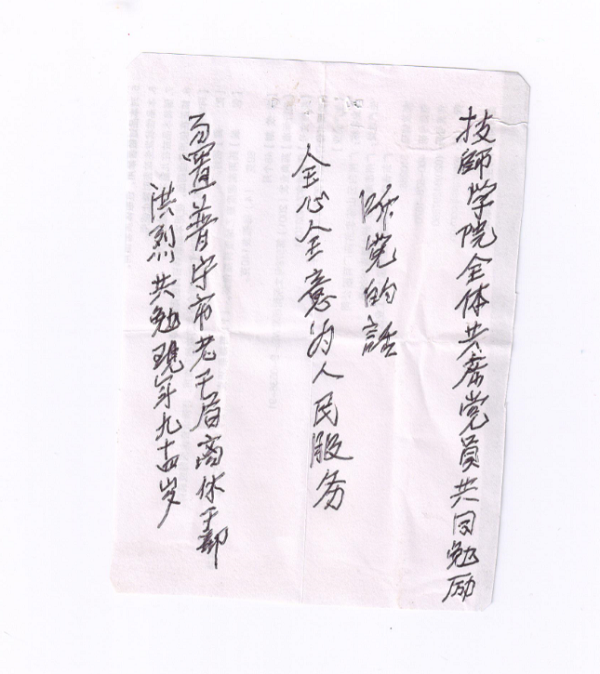 技師学院全体共产党员共同勉励
听党的話
全心全意为人民服务
普宁市老干局离休干部
洪烈共勉現年九十四岁